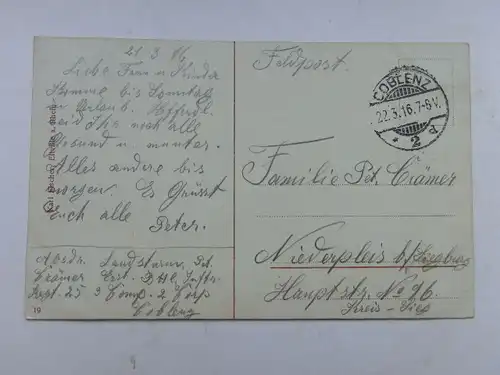 21 3 16
Liebe Frau u Kinder
Komme bis Sonntag
in Urlaub. Hoffentl.
seid Ihr noch alle
Gesund u munter.
Alles andere bis
morgen. Es Grüsst
Euch alle
Peter.
Absdr. Landsturm. Pet.
Crämer Ers. Batl. Inftr.
Regt. 25 3 Comp. 2 Corp
Coblenz
19
Feldpost.
COBLENZ
22.3.16.7-8V.
* 2 d
Familie Pet. Crämer
Niederpleis b/Siegburg
Hauptstr. No 96.
Kreis-Sieg